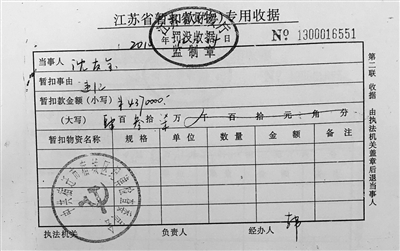 江苏省暂扣款(物)专用收据
罚没收据
监制章
№ 1300016551
当事人 沈友金
暂扣事由 违纪
暂扣款金额(小写) ¥437000.
(大写) 肆百叁拾柒万 千 百 拾 元 角 分
暂扣物资名称 规格 单位 数量 金额 备注
执法机关 负责人 经办人
第二联 收据 由执法机关盖章后退当事人